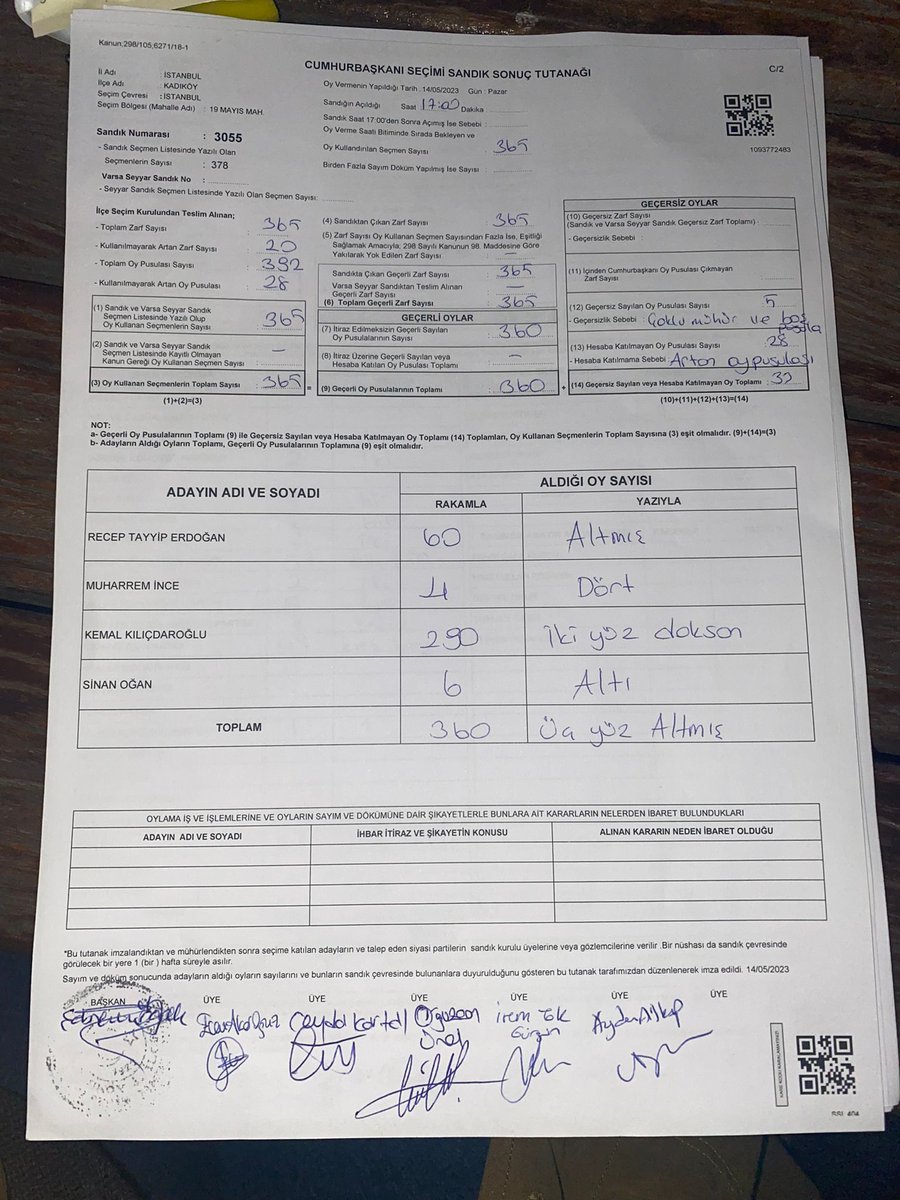 Kanun;298/105;6271/18-1
CUMHURBAŞKANI SEÇİMİ SANDIK SONUÇ TUTANAĞI
C/2
İl Adı : İSTANBUL
İlçe Adı : KADIKÖY
Seçim Çevresi : İSTANBUL
Seçim Bölgesi (Mahalle Adı) : 19 MAYIS MAH.
Sandık Numarası : 3055
- Sandık Seçmen Listesinde Yazılı Olan
Seçmenlerin Sayısı : 378
Varsa Seyyar Sandık No :
- Seyyar Sandık Seçmen Listesinde Yazılı Olan Seçmen Sayısı:
Oy Vermenin Yapıldığı Tarih : 14/05/2023 Gün : Pazar
Sandığın Açıldığı Saat 17:00 Dakika
Sandık Saat 17:00'den Sonra Açımış İse Sebebi :
Oy Verme Saati Bitiminde Sırada Bekleyen ve
Oy Kullandırılan Seçmen Sayısı : 365
Birden Fazla Sayım Döküm Yapılmış İse Sayısı :
1093772483
İlçe Seçim Kurulundan Teslim Alınan;
- Toplam Zarf Sayısı : 365
- Kullanılmayarak Artan Zarf Sayısı : 20
- Toplam Oy Pusulası Sayısı : 392
- Kullanılmayarak Artan Oy Pusulası : 28
(1) Sandık ve Varsa Seyyar Sandık
Seçmen Listesinde Yazılı Olup
Oy Kullanan Seçmenlerin Sayısı : 365
(2) Sandık ve Varsa Seyyar Sandık
Seçmen Listesinde Kayıtlı Olmayan
Kanun Gereği Oy Kullanan Seçmen Sayısı : —
(3) Oy Kullanan Seçmenlerin Toplam Sayısı : 365 =
(1)+(2)=(3)
(4) Sandıktan Çıkan Zarf Sayısı : 365
(5) Zarf Sayısı Oy Kullanan Seçmen Sayısından Fazla İse, Eşitliği
Sağlamak Amacıyla; 298 Sayılı Kanunun 98. Maddesine Göre
Yakılarak Yok Edilen Zarf Sayısı : —
Sandıkta Çıkan Geçerli Zarf Sayısı : 365
Varsa Seyyar Sandıktan Teslim Alınan
Geçerli Zarf Sayısı : —
(6) Toplam Geçerli Zarf Sayısı : 365
GEÇERLİ OYLAR
(7) İtiraz Edilmeksizin Geçerli Sayılan
Oy Pusulası Sayısı : 360
(8) İtiraz Üzerine Geçerli Sayılan veya
Hesaba Katılan Oy Pusulası Toplamı : —
(9) Geçerli Oy Pusulalarının Toplamı : 360 +
GEÇERSİZ OYLAR
(10) Geçersiz Zarf Sayısı
(Sandık ve Varsa Seyyar Sandık Geçersiz Zarf Toplamı) :
- Geçersizlik Sebebi :
(11) İçinden Cumhurbaşkanı Oy Pusulası Çıkmayan
Zarf Sayısı :
(12) Geçersiz Sayılan Oy Pusulası Sayısı : 5
- Geçersizlik Sebebi : Çoklu mühür ve boş
pusula
(13) Hesaba Katılmayan Oy Pusulası Sayısı : 28
- Hesaba Katılmama Sebebi : Artan oy pusulası
(14) Geçersiz Sayılan veya Hesaba Katılmayan Oy Toplamı : 33
(10)+(11)+(12)+(13)=(14)
NOT:
a- Geçerli Oy Pusulalarının Toplamı (9) ile Geçersiz Sayılan veya Hesaba Katılmayan Oy Toplamı (14) Toplamları, Oy Kullanan Seçmenlerin Toplam Sayısına (3) eşit olmalıdır. (9)+(14)=(3)
b- Adayların Aldığı Oyların Toplamı, Geçerli Oy Pusulalarının Toplamına (9) eşit olmalıdır.
ADAYIN ADI VE SOYADI
ALDIĞI OY SAYISI
RAKAMLA YAZIYLA
RECEP TAYYİP ERDOĞAN 60 Altmış
MUHARREM İNCE 4 Dört
KEMAL KILIÇDAROĞLU 290 İki yüz doksan
SİNAN OĞAN 6 Altı
TOPLAM 360 Üç yüz Altmış
OYLAMA İŞ VE İŞLEMLERİNE VE OYLARIN SAYIM VE DÖKÜMÜNE DAİR ŞİKAYETLERLE BUNLARA AİT KARARLARIN NELERDEN İBARET BULUNDUKLARI
ADAYIN ADI VE SOYADI İHBAR İTİRAZ VE ŞİKAYETİN KONUSU ALINAN KARARIN NEDEN İBARET OLDUĞU
*Bu tutanak imzalandıktan ve mühürlendikten sonra seçime katılan adayların ve talep eden siyasi partilerin sandık kurulu üyelerine veya gözlemcilerine verilir .Bir nüshası da sandık çevresinde
görülecek bir yere 1 (bir ) hafta süreyle asılır.
Sayım ve döküm sonucunda adayların aldığı oyların sayılarını ve bunların sandık çevresinde bulunanlara duyurulduğunu gösteren bu tutanak tarafımızdan düzenlenerek imza edildi. 14/05/2023
BAŞKAN ÜYE ÜYE ÜYE ÜYE ÜYE ÜYE